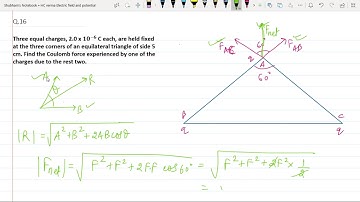 Shubham's Notebook » HC verma electric field and potential
Q.16
Three equal charges, 2.0 x 10⁻⁶ C each, are held fixed
at the three corners of an equilateral triangle of side 5
cm. Find the Coulomb force experienced by one of the
charges due to the rest two.
A R
θ
B
|R| = √A²+B²+2ABcosθ
|F_net| = √F²+F²+2FF cos60° = √F²+F²+2F²×1/2
=
F_net
F_AC F_AB
60°
q A
60°
B C
q q